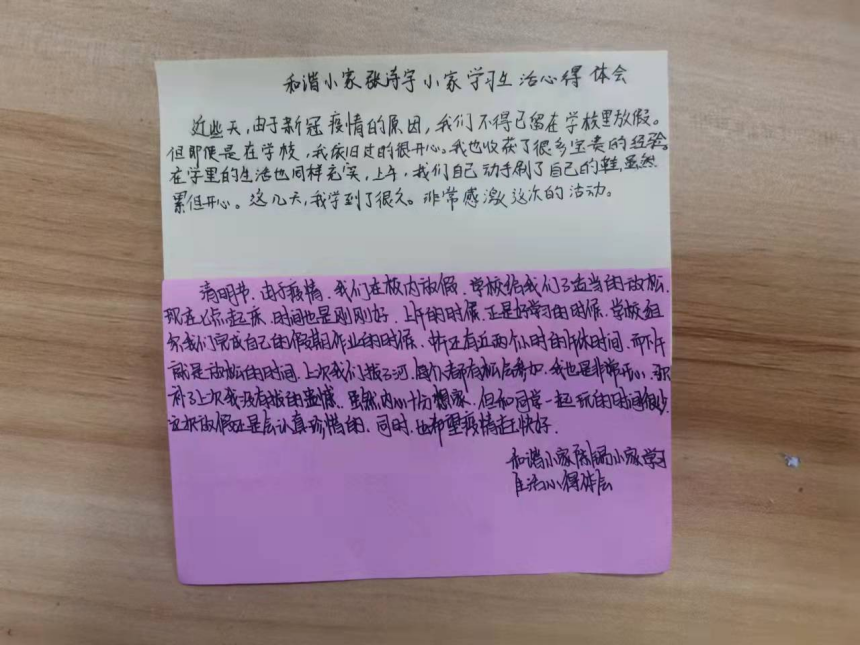 和谐小家张诗宇小家学习生活心得体会
近些天,由于新冠疫情的原因,我们不得已留在学校里放假。
但即使是在学校,我依旧过的很开心。我也收获了很多宝贵的经验。
在学里的生活也同样充实,上午,我们自己动手刷了自己的鞋,虽然
累但开心。这几天,我学到了很久。非常感激这次的活动。
清明节,由于疫情,我们在校内放假,学校给我们了适当的放松,
现在七点起床,时间也是刚刚好,上午的时候,正是好学习的时候,学校组
织我们完成自己的假期作业的时候,中午还有近两个小时的午休时间,而下午
就是放松的时间,上次我们拔了河,每个都有机会参加,我也是非常开心,
补了上次我没有拔的遗憾,虽然内心十分想家,但和同学一起玩的时间很少,
这次放假还是会认真珍惜的,同时,也希望疫情赶快好。
和谐小家陈 小家学习
生活心得体会